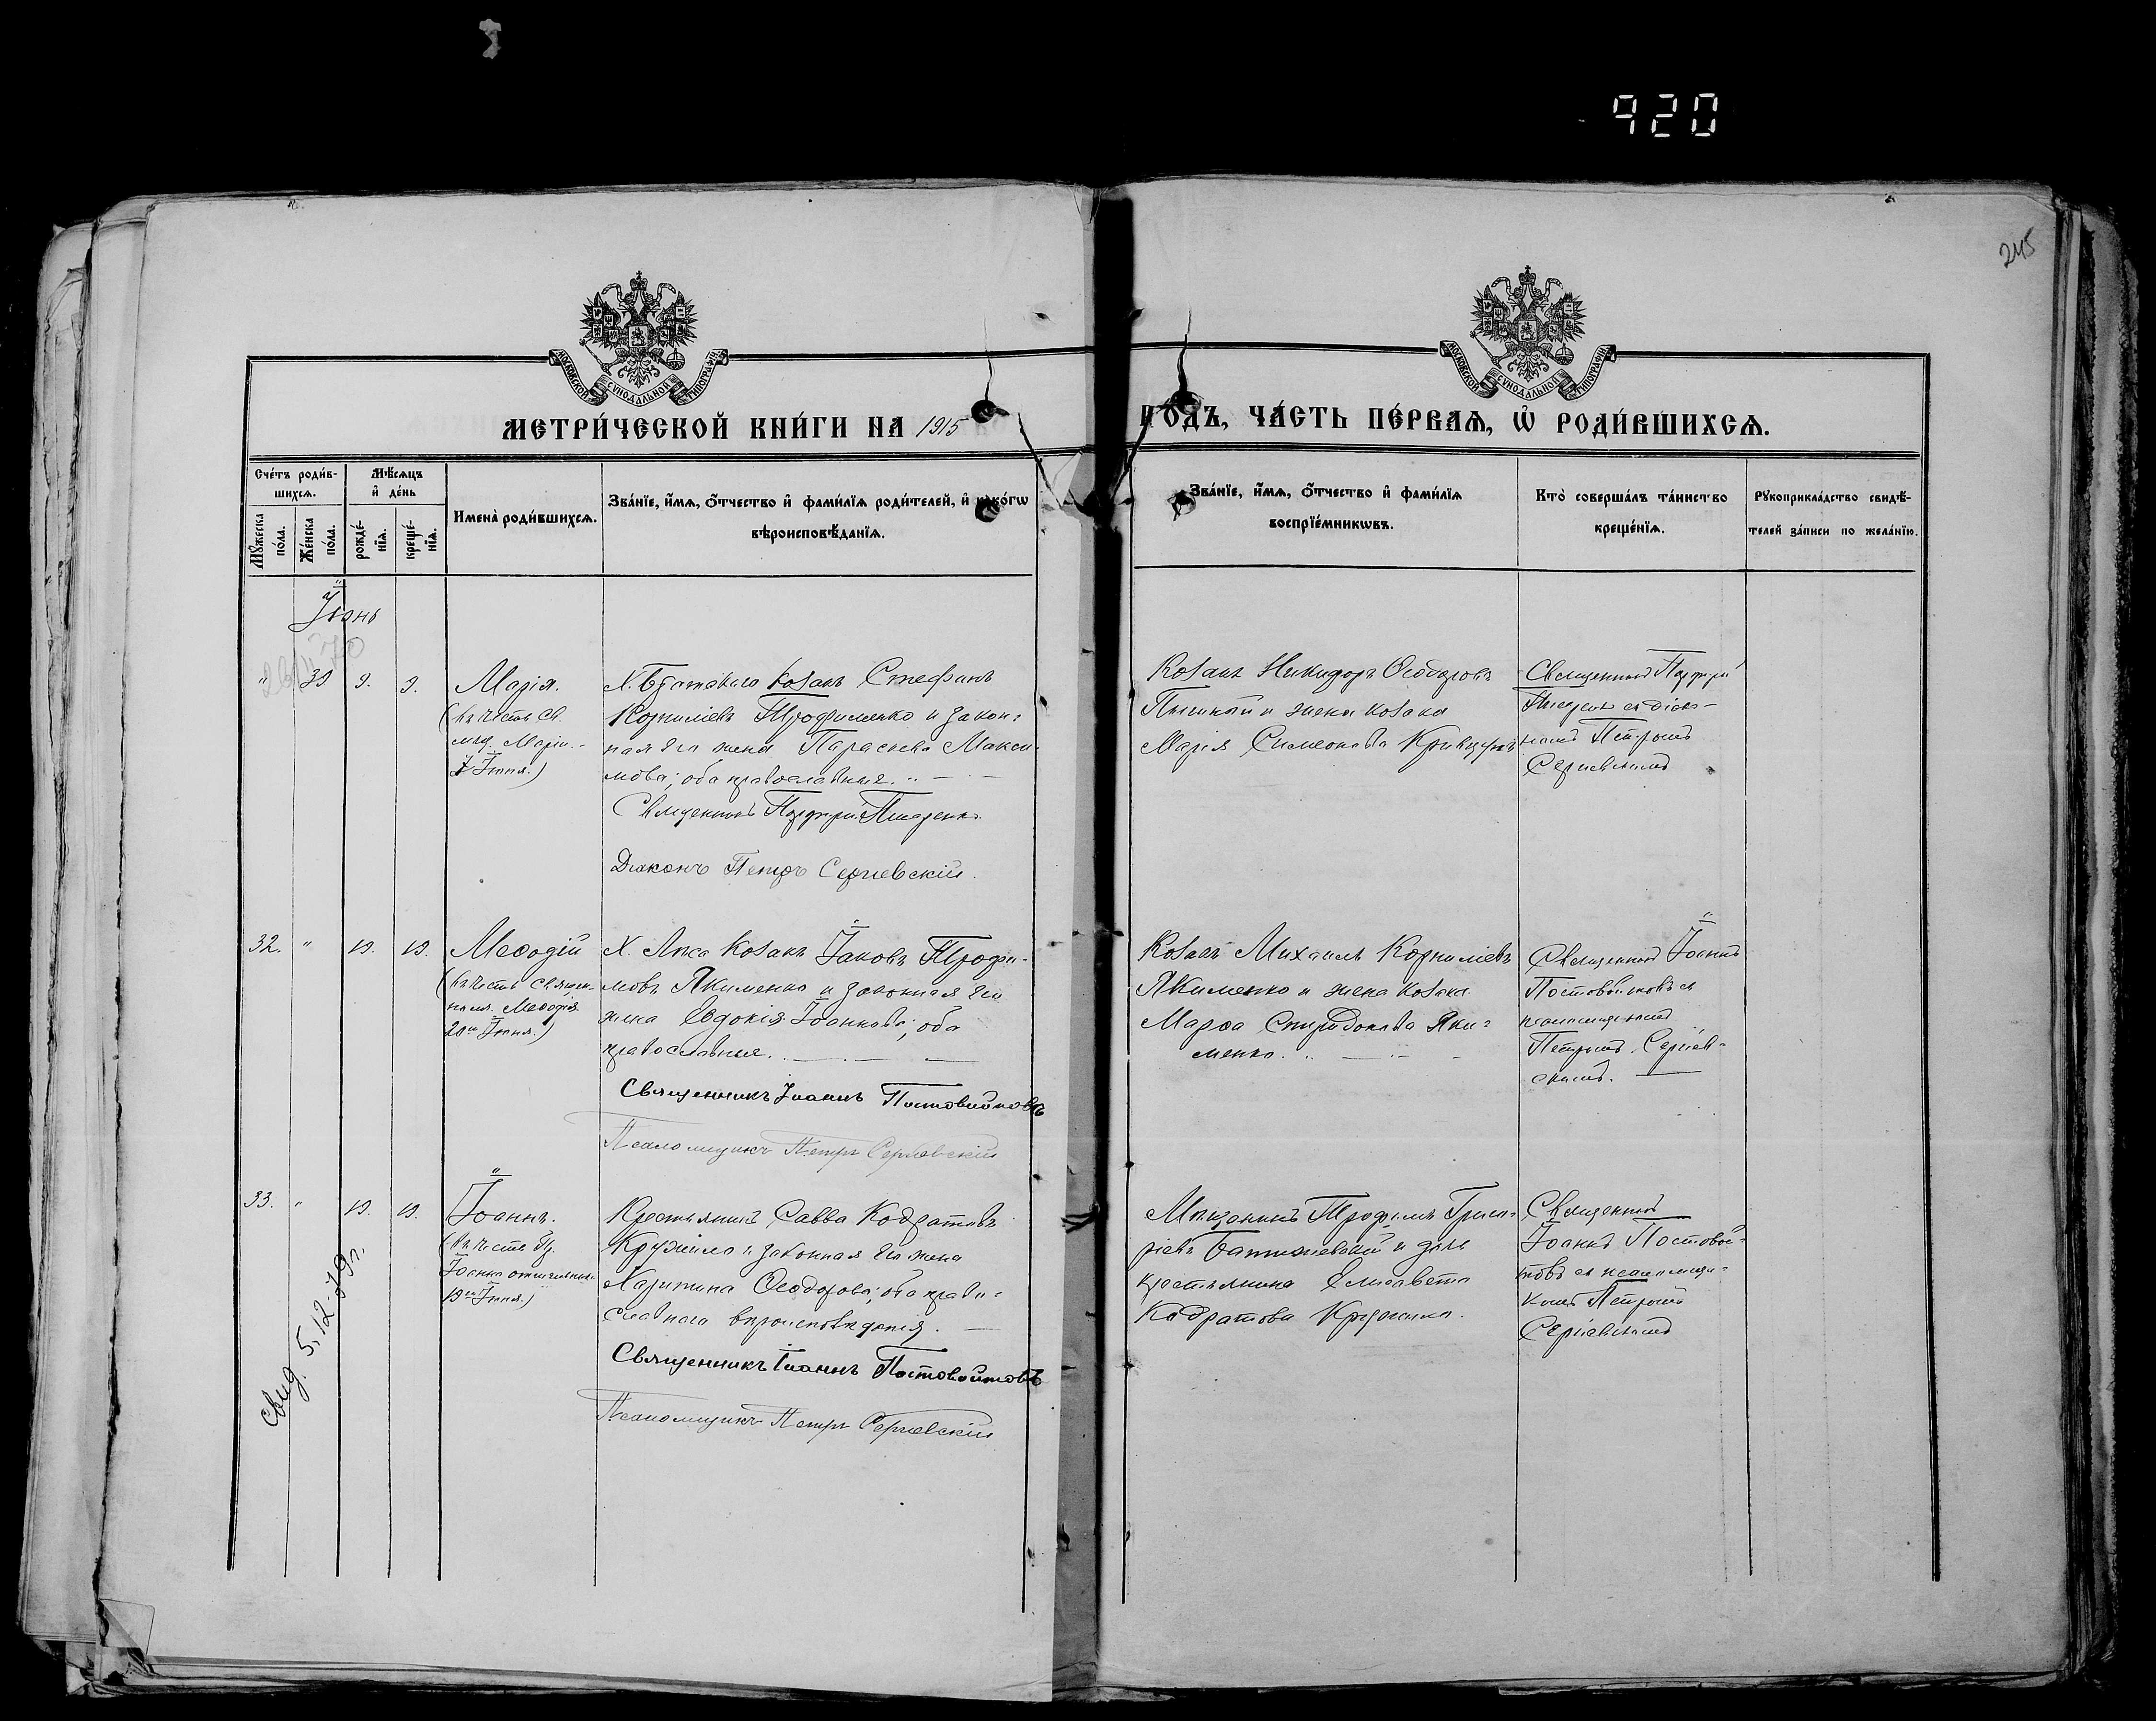 920
245
МОСКОВСКОЙ СУНОДАЛЬНОЙ ТИПОГРАФІИ
МОСКОВСКОЙ СУНОДАЛЬНОЙ ТИПОГРАФІИ
МЕТРИ́ЧЕСКОЙ КНИ́ГИ НА 1915
ГОДЪ, ЧА́СТЬ ПЕ́РВАѦ, Ѡ҆ РОДИ́ВШИХСѦ.
Сче́тъ роди́в-
шихсѧ.
Мѣ́сѧцъ
и҆ де́нь
Мꙋ́жеска
по́ла.
Же́нска
по́ла.
рожде́-
нїѧ.
креще́-
нїѧ.
Имена̀ роди́вшихсѧ.
Зва́нїе, и҆́мѧ, ѻ҆́тчество и҆ фами́лїѧ роди́телей, и҆ како́гѡ
вѣроисповѣ́данїѧ.
Зва́нїе, и҆́мѧ, ѻ҆́тчество и҆ фами́лїѧ
воспрїе́мникѡвъ.
Кто̀ соверша́лъ та́инство
креще́нїѧ.
Рꙋкоприкла́дство свидѣ́-
телей за́писи по жела́нїю.
Іюнь
" 39 9. 9. Марія.
(въ честь св.
Маріи
Іюня.)
Козакъ Стефанъ
Корниліевъ Трофименко и закон-
ная его жена Параскева Макси-
мова; оба православные.
Священникъ Порфирій
Діаконъ Петръ Сергіевскій.
Козакъ Никифоръ Ѳеодоровъ
и жена козака
Марія Симеонова
Священникъ Порфирій
съ діако-
номъ Петромъ
Сергіевскимъ
32. " 19. 19. Меѳодій
(въ честь священ-
номуч. Меѳодія
20го Іюня.)
Х. Лиса Козакъ Іаковъ Трофи-
мовъ Якименко и законная его
жена Евдокія Іоаннова; оба
православные.
Священникъ Іоаннъ Постовойтовъ
Псаломщикъ Петръ Сергіевскій
Козакъ Михаилъ Корниліевъ
Якименко и жена козака
Марѳа Спиридонова Яки-
менко.
Священникъ Іоаннъ
Постовойтовъ съ
псаломщикомъ
Петромъ Сергіев-
скимъ.
33. " 19. 19. Іоаннъ.
(въ честь Пр.
Іоанна отшельника
19го Іюня.)
Крестьянинъ Савва Кодратовъ
Кружило и законная его жена
Харитина Ѳеодорова; оба право-
славнаго вѣроисповѣданія.
Священникъ Іоаннъ Постовойтовъ
Псаломщикъ Петръ Сергіевскій
Мѣщанинъ Трофимъ Григо-
ріевъ и дочь
крестьянина Елисавета
Кодратова
Священникъ
Іоаннъ Постовой-
товъ съ псаломщи-
комъ Петромъ
Сергіевскимъ
свид. 5.12-79г.